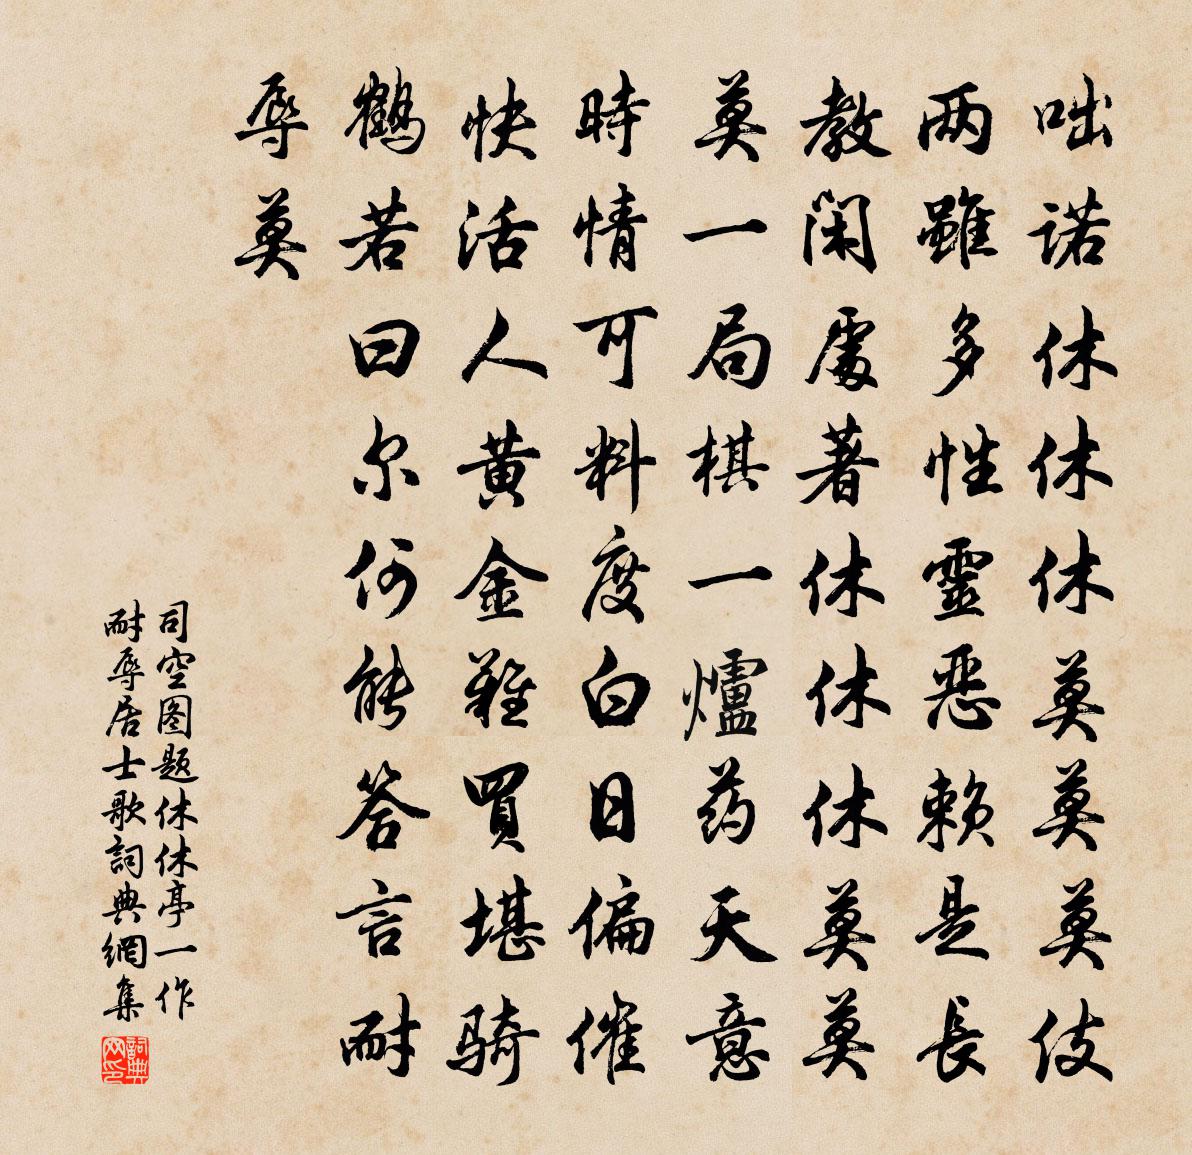 咄諾休休休莫莫莫伎
两雖多性靈恶赖是長
教闲處著休休休莫莫
莫一局棋一爐药天意
時情可料度白日偏催
快活人黄金難買堪骑
鶴若曰尔何能答言耐
辱莫
司空图题休休亭一作
耐辱居士歌詞典網集
詞典网印